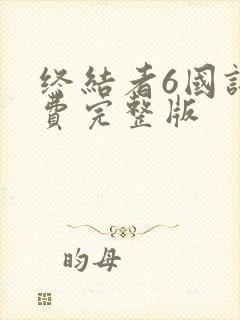 终结者6国
费完整版
昀母